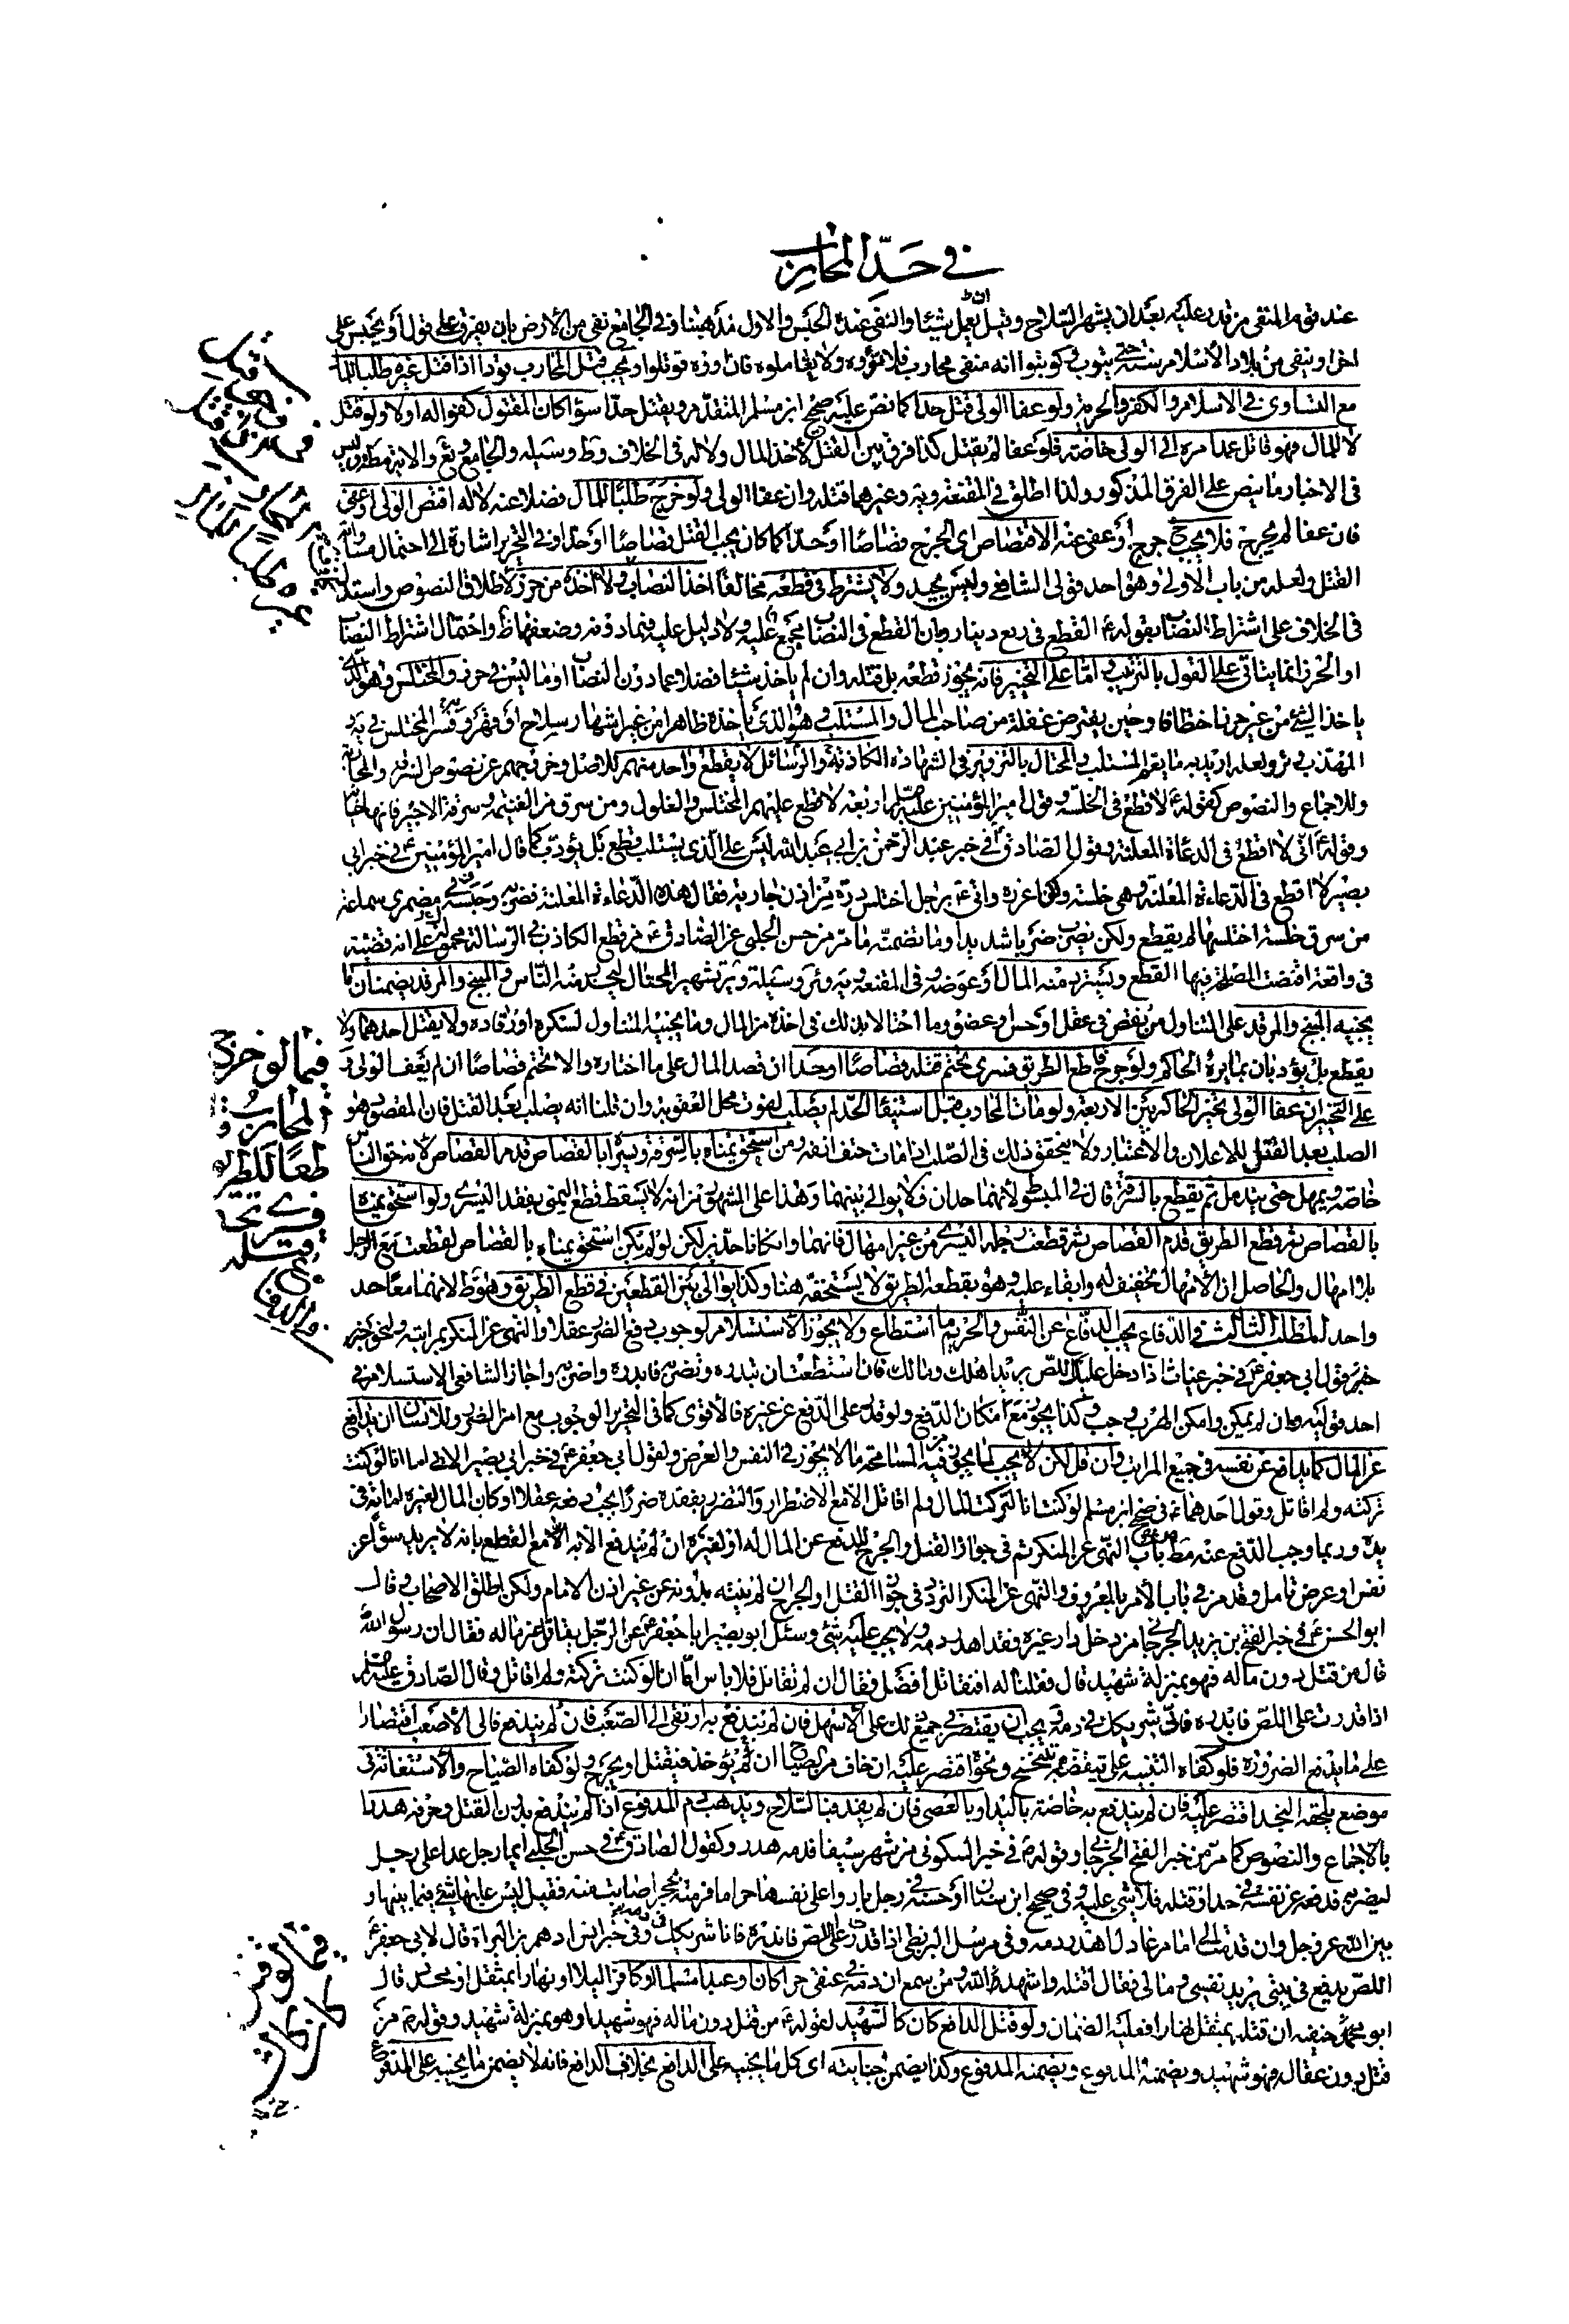 في حد المحارب
عند قوم المنفى من قدر عليه بعد ان يشهر السلاح وقبل ان يعمل شيئا والنفى عنده الحبس والاول مذهبنا وفى الجامع نفى من الارض بان يغرق على قول او يحبس على
اخر او ينفى من بلاد الاسلام سنة حتى يتوب وكوتبوا انه منفى محارب فلا تؤوه ولا تعاملوه فان اووه قوتلوا ويجب قتل المحارب قودا اذا قتل غيره طلبا للمال
مع التساوى في الاسلام والكفر والحرية ولو عفا الولى قتل حدا كما نص عليه صحيح ابن مسلم المتقدم ويقتل حدا سواء كان المقتول كفوا له اولا ولو قتل
لا للمال فهو قاتل عمدا امره الى الولى خاصة فلو عفا لم يقتل كذا فرق بين القتل لاخذ المال ولا له فى الخلاف وط وسيله والجامع ويع والاية مطلقة وليس
فى الاخبار ما ينص على الفرق المذكور ولذا اطلق في المقنعة ويه وغيرهما قتله وان عفا الولى ولو جرح طلبا للمال فضلا عنه لا له اقتص الولى او عفى
فان عفا لم يجرح فلا يجب جرحه او عفى عنه الاقتصاص اى الجرح قصاصا او حدا كما كان يجب القتل قصاصا او حدا وفى التحرير اشارة الى احتمال مساواته
القتل ولعله من باب الاولى وهو احد قولى الشافعى وليس بجيد ولا يشترط فى قطعه مخالفا اخذ النصاب ولا اخذه من حرز لاطلاق النصوص واستدل
فى الخلاف على اشتراط النصاب بقوله ع القطع فى ربع دينار وبان القطع فى النصاب مجمع عليه ولا دليل عليه فيما دونه وضعفهما ظ واحتمال اشتراط النصاب
او الحرز انما يتاتى على القول بالترتيب اما على التخيير فانه يجوز قطعه بل قتله وان لم ياخذ شيئا فضلا عما دون النصاب او ما ليس فى حرز والمختلس وهو الذى
ياخذ الشئ من غير حرز اختطافا وحين يفترص غفلة من صاحب المال والمستلب وهو الذى ياخذه ظاهرا من غير اشهار سلاح او قهر وفسر المختلس فى يه به
المهذب وئر ولعله اريد به ما يعم المستلب والمحتال بالتزوير فى الشهادة الكاذبة والرسائل لا يقطع واحد منهم للاصل وخروجهم عن نصوص السرقة والمحاربة
وللاجماع والنصوص كقوله ع لا قطع فى الخلسة وقول امير المؤمنين عليه السلم اربعة لا قطع عليهم المختلس والغلول ومن سرق من الغنيمة وسرقة الاجير فانها خيانة
وقوله ع انى لا اقطع فى الدعارة المعلنة وقول الصادق ع فى خبر عبد الرحمن بن ابى عبد الله ليس على الذى يستلب قطع بل يؤدب كما قال امير المؤمنين ع فى خبر ابى
بصير لا اقطع فى الدعارة المعلنة وهى خلسة ولكن اعزره واتى ع برجل اختلس درة من اذن جارية فقال هذه الدعارة المعلنة فضربه وحبسه وفى مضمرى سماعة
من سرق خلسة اختلسها لم يقطع ولكن يضرب ضربا شديدا وما تضمنه ما مر من حسن الحلبى عن الصادق ع من قطع الكاذب فى الرسالة محمول على انه قضية
فى واقعة اقتضت المصلحة فيها القطع ويسترد منه المال او عوضه وفى المقنعة ويه وئر وسيلة ويتر تشهير المحتال ليحذر منه الناس والمبنج والمرقد يضمنان ما
يجنيه المبنج والمرقد على المتناول من نقص فى عقل او حس او عضو وما احتالا بذلك فى اخذه من المال وما يجنيه المتناول لسكره او رقاده ولا يقتل احدهما ولا
يقطع بل يؤدبان بما يراه الحاكم ولو جرح قاطع الطريق فسرى تحتم قتله قصاصا او حدا ان قصد المال على ما اختاره والا تحتم قصاصا ان لم يعف الولى و
على التخيير ان عفا الولى تخير الحاكم بين الاربعة ولو مات المحارب قبل استيفاء الحد لم يصلب لفوت محل العقوبة وان قلنا انه يصلب بعد القتل فان المقصود هو
الصلب بعد القتل للاعلان والاعتبار ولا يتحقق ذلك فى الصلب اذا مات حتف انفه ومن استحق يمناه بالسرقة ويسراه بالقصاص قدم القصاص لانه حق الناس
خاصة ويمهل حتى يندمل ثم يقطع بالسرقة قال فى المبسوط لانهما حدان فلا يوالى بينهما وهذا على المشهور من انه لا يسقط قطع اليمنى بفقد اليسرى ولو استحق يمناه
بالقصاص ثم قطع الطريق قدم القصاص ثم قطعت رجله اليسرى من غير امهال فانهما وان كانا حدين لكن لو لم يكن استحق يمناه بالقصاص لقطعت مع الرجل
بلا امهال والحاصل ان الامهال تخفيف له وابقاء عليه وهو بقطعه الطريق لا يستحقه هنا وكذا يوالى بين القطعين فى قطع الطريق وهو ظ لانهما معا حد
واحد المطلب الثالث فى الدفاع يجب الدفاع عن النفس والحريم ما استطاع ولا يجوز الاستسلام لوجوب دفع الضرر عقلا والنهى عن المنكر بمراتبه ولنحو خبر
خبر قول ابى جعفر ع فى خبر غياث اذا دخل عليك اللص يريد اهلك ومالك فان استطعت ان تبدره وتضربه فابدره واضربه واجاز الشافعى الاستسلام فى
احد قوليه وان لم يمكن وامكن الهرب وجب وكذا يجوز مع امكان الدفع ولو قدر على الدفع عن غيره فالاقوى كما فى التحرير الوجوب مع امن الضرر وللانسان ان يدافع
عن المال كما يدافع عن نفسه فى جميع المراتب وان قل لكن لا يجب لما يجوز فيه من المسامحة ما لا يجوز فى النفس والعرض ولقول ابى جعفر ع فى خبر ابى بصير الاتى اما انا لو كنت
تركته ولم اقاتل وقول احدهما ع فى صحيح ابن مسلم لو كنت انا لتركت المال ولم اقاتل الا مع الاضطرار والتضرر بفقده ضررا يجب دفعه عقلا او كان المال لغيره امانة فى
يده وربما وجب الدفع عنه مط من باب النهى عن المنكر ثم فى جواز القتل والجرح للدفع عن المال له او لغيره ان لم يندفع الا به الا مع القطع بانه لا يريد سوءا عن
نفس او عرض تامل وقد مر فى باب الامر بالمعروف والنهى عن المنكر التردد فى جواز القتل او الجرح ان لم ينته بدونه عن غير اذن الامام ولكن اطلق الاصحاب وقال
ابو الحسن ع فى خبر الفتح بن يزيد الجرجانى من دخل دار غيره فقد اهدر دمه ولا يجب عليه شئ وسئل ابو بصير ابا جعفر ع عن الرجل يقاتل عن ماله فقال ان رسول الله
قال من قتل دون ماله فهو بمنزلة شهيد قال فقلنا له افنقاتل افضل فقال ان لم تقاتل فلا باس اما انا لو كنت تركته ولم اقاتل وقال الصادق عليه السلم
اذا قدرت على اللص فابدره فانى شريكك فى دمه ويجب ان يقتصر فى جميع ذلك على الاسهل فان لم يندفع به ارتقى الى الصعب فان لم يندفع فالى الاصعب اقتصارا
على ما يدفع الضرورة فلو كفاه التنبيه على تيقظه بتنحنح ونحوه اقتصر عليه ان خاف من الصياح ان يؤخذ فيقتل او يجرح ولو كفاه الصياح والاستغاثة فى
موضع يلحقه المنجد اقتصر عليه فان لم يندفع به خاصمه باليد او بالعصى فان لم يفد فبالسلاح ويذهب دم المدفوع اذا لم يندفع بدون القتل وجرحه هدرا
بالاجماع والنصوص كما مر من خبر الفتح الجرجانى وقوله ع فى خبر السكونى من شهر سيفا فدمه هدر وكقول الصادق ع فى حسن الحلبى ايما رجل عدا على رجل
ليضربه فدفعه عن نفسه فجرحه او قتله فلا شئ عليه وفى صحيح ابن سنان او حسنه فى رجل راود امراة على نفسها حراما فرمته بحجر اصابت منه فقيل ليس عليها شئ فيما بينها و
بين الله عز وجل وان قدمت الى امام عادل اهدر دمه وفى مرسل البزنطى اذا قدرت على اللص فابدره فانا شريكك فى دمه وفى خبر انس او هيثم بن البراء قال لابى جعفر ع
اللص يدفع فى بيتى يريد نفسى ومالى فقال اقتله واشهد الله ومن سمع ان دمه فى عنقى حرا كان او عبدا مسلما او كافرا ليلا او نهارا بمثقل او محدد قال
ابو حنيفة ان قتله بمثقل نهارا فعليه الضمان ولو قتل الدافع كان كالشهيد لقوله ع من قتل دون ماله فهو شهيد او هو بمنزلة شهيد وقوله ع من
قتل دون عقال فهو شهيد ويضمنه المدفوع وكذا يضمن جنايته اى كل ما يجنيه على الدافع بخلاف الدافع فانه لا يضمن ما يجنيه على المدفوع
فيما لو جرح
المحارب
قطعا للطريق
فسرى تحتم
قتله
فى الدفاع